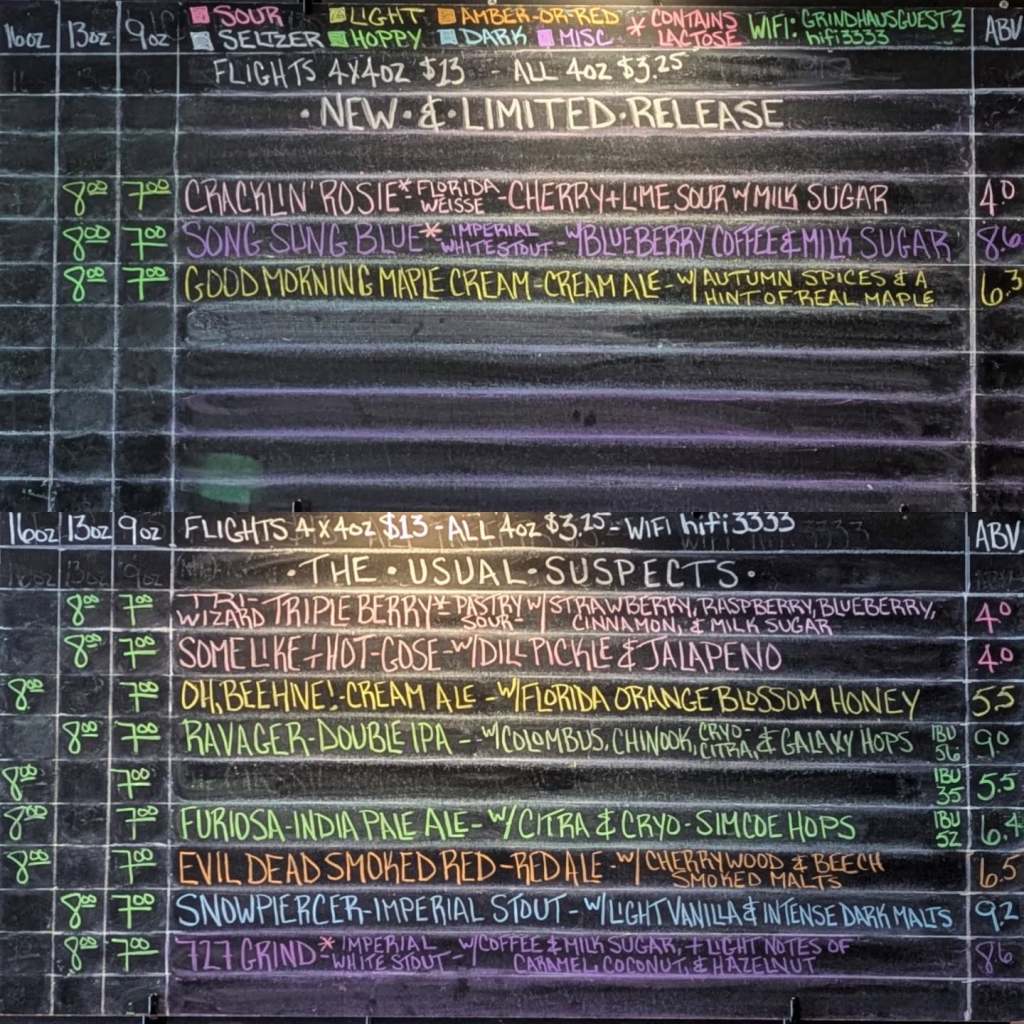 SOUR LIGHT AMBER-OR-RED * CONTAINS LACTOSE WIFI: GRINDHAUSGUEST2 hifi3333
16oz 13oz 9oz SELTZER HOPPY DARK MISC ABV
FLIGHTS 4X4OZ $13 - ALL 4OZ $3.25
·NEW·&·LIMITED·RELEASE
8.00 7.00 CRACKLIN' ROSIE* FLORIDA WEISSE - CHERRY + LIME SOUR W/ MILK SUGAR 4.0
8.00 7.00 SONG SUNG BLUE* IMPERIAL WHITE STOUT - W/ BLUEBERRY COFFEE & MILK SUGAR 8.6
8.00 7.00 GOOD MORNING MAPLE CREAM - CREAM ALE - W/ AUTUMN SPICES & A HINT OF REAL MAPLE 6.3
16oz 13oz 9oz FLIGHTS 4X4OZ $13 - ALL 4OZ $3.25 - WIFI hifi3333 ABV
·THE·USUAL·SUSPECTS·
8.00 7.00 TRI-WIZARD TRIPLE BERRY* PASTRY SOUR - W/ STRAWBERRY, RASPBERRY, BLUEBERRY, CINNAMON, & MILK SUGAR 4.0
8.00 7.00 SOME LIKE + HOT - GOSE - W/ DILL PICKLE & JALAPENO 4.0
8.00 7.00 OH, BEEHNE! - CREAM ALE - W/ FLORIDA ORANGE BLOSSOM HONEY 5.5
8.00 7.00 RAVAGER - DOUBLE IPA - W/ COLOMBUS, CHINOOK, CRYO-CITRA, & GALAXY HOPS IBU 56 9.0
8.00 7.00 IBU 35 5.5
8.00 7.00 FURIOSA - INDIA PALE ALE - W/ CITRA & CRYO-SIMCOE HOPS IBU 52 6.4
8.00 7.00 EVIL DEAD SMOKED RED - RED ALE - W/ CHERRYWOOD & BEECH SMOKED MALTS 6.5
8.00 7.00 SNOWPIERCER - IMPERIAL STOUT - W/ LIGHT VANILLA & INTENSE DARK MALTS 9.2
8.00 7.00 727 GRIND* IMPERIAL WHITE STOUT - W/ COFFEE & MILK SUGAR, + LIGHT NOTES OF CARAMEL, COCONUT, & HAZELNUT 8.6